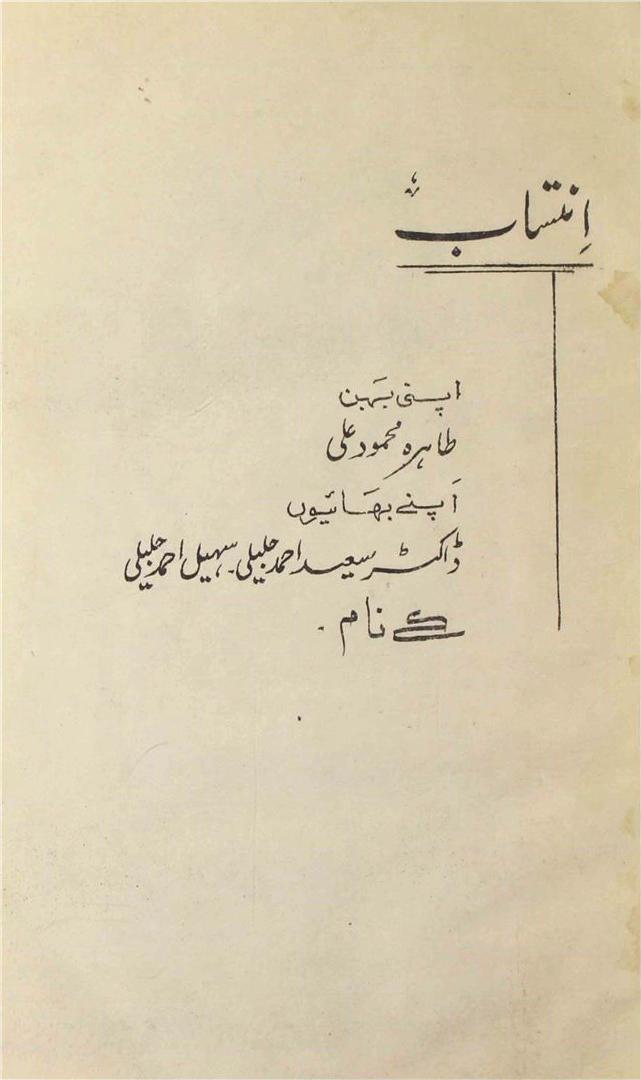 اِنتساب
اپنی بہَن
طاہرہ محمود علی
اَپنے بھَائیوں
ڈاکٹر سعید احمد جلیلی۔ سہیل احمد جلیلی
کے نام۔